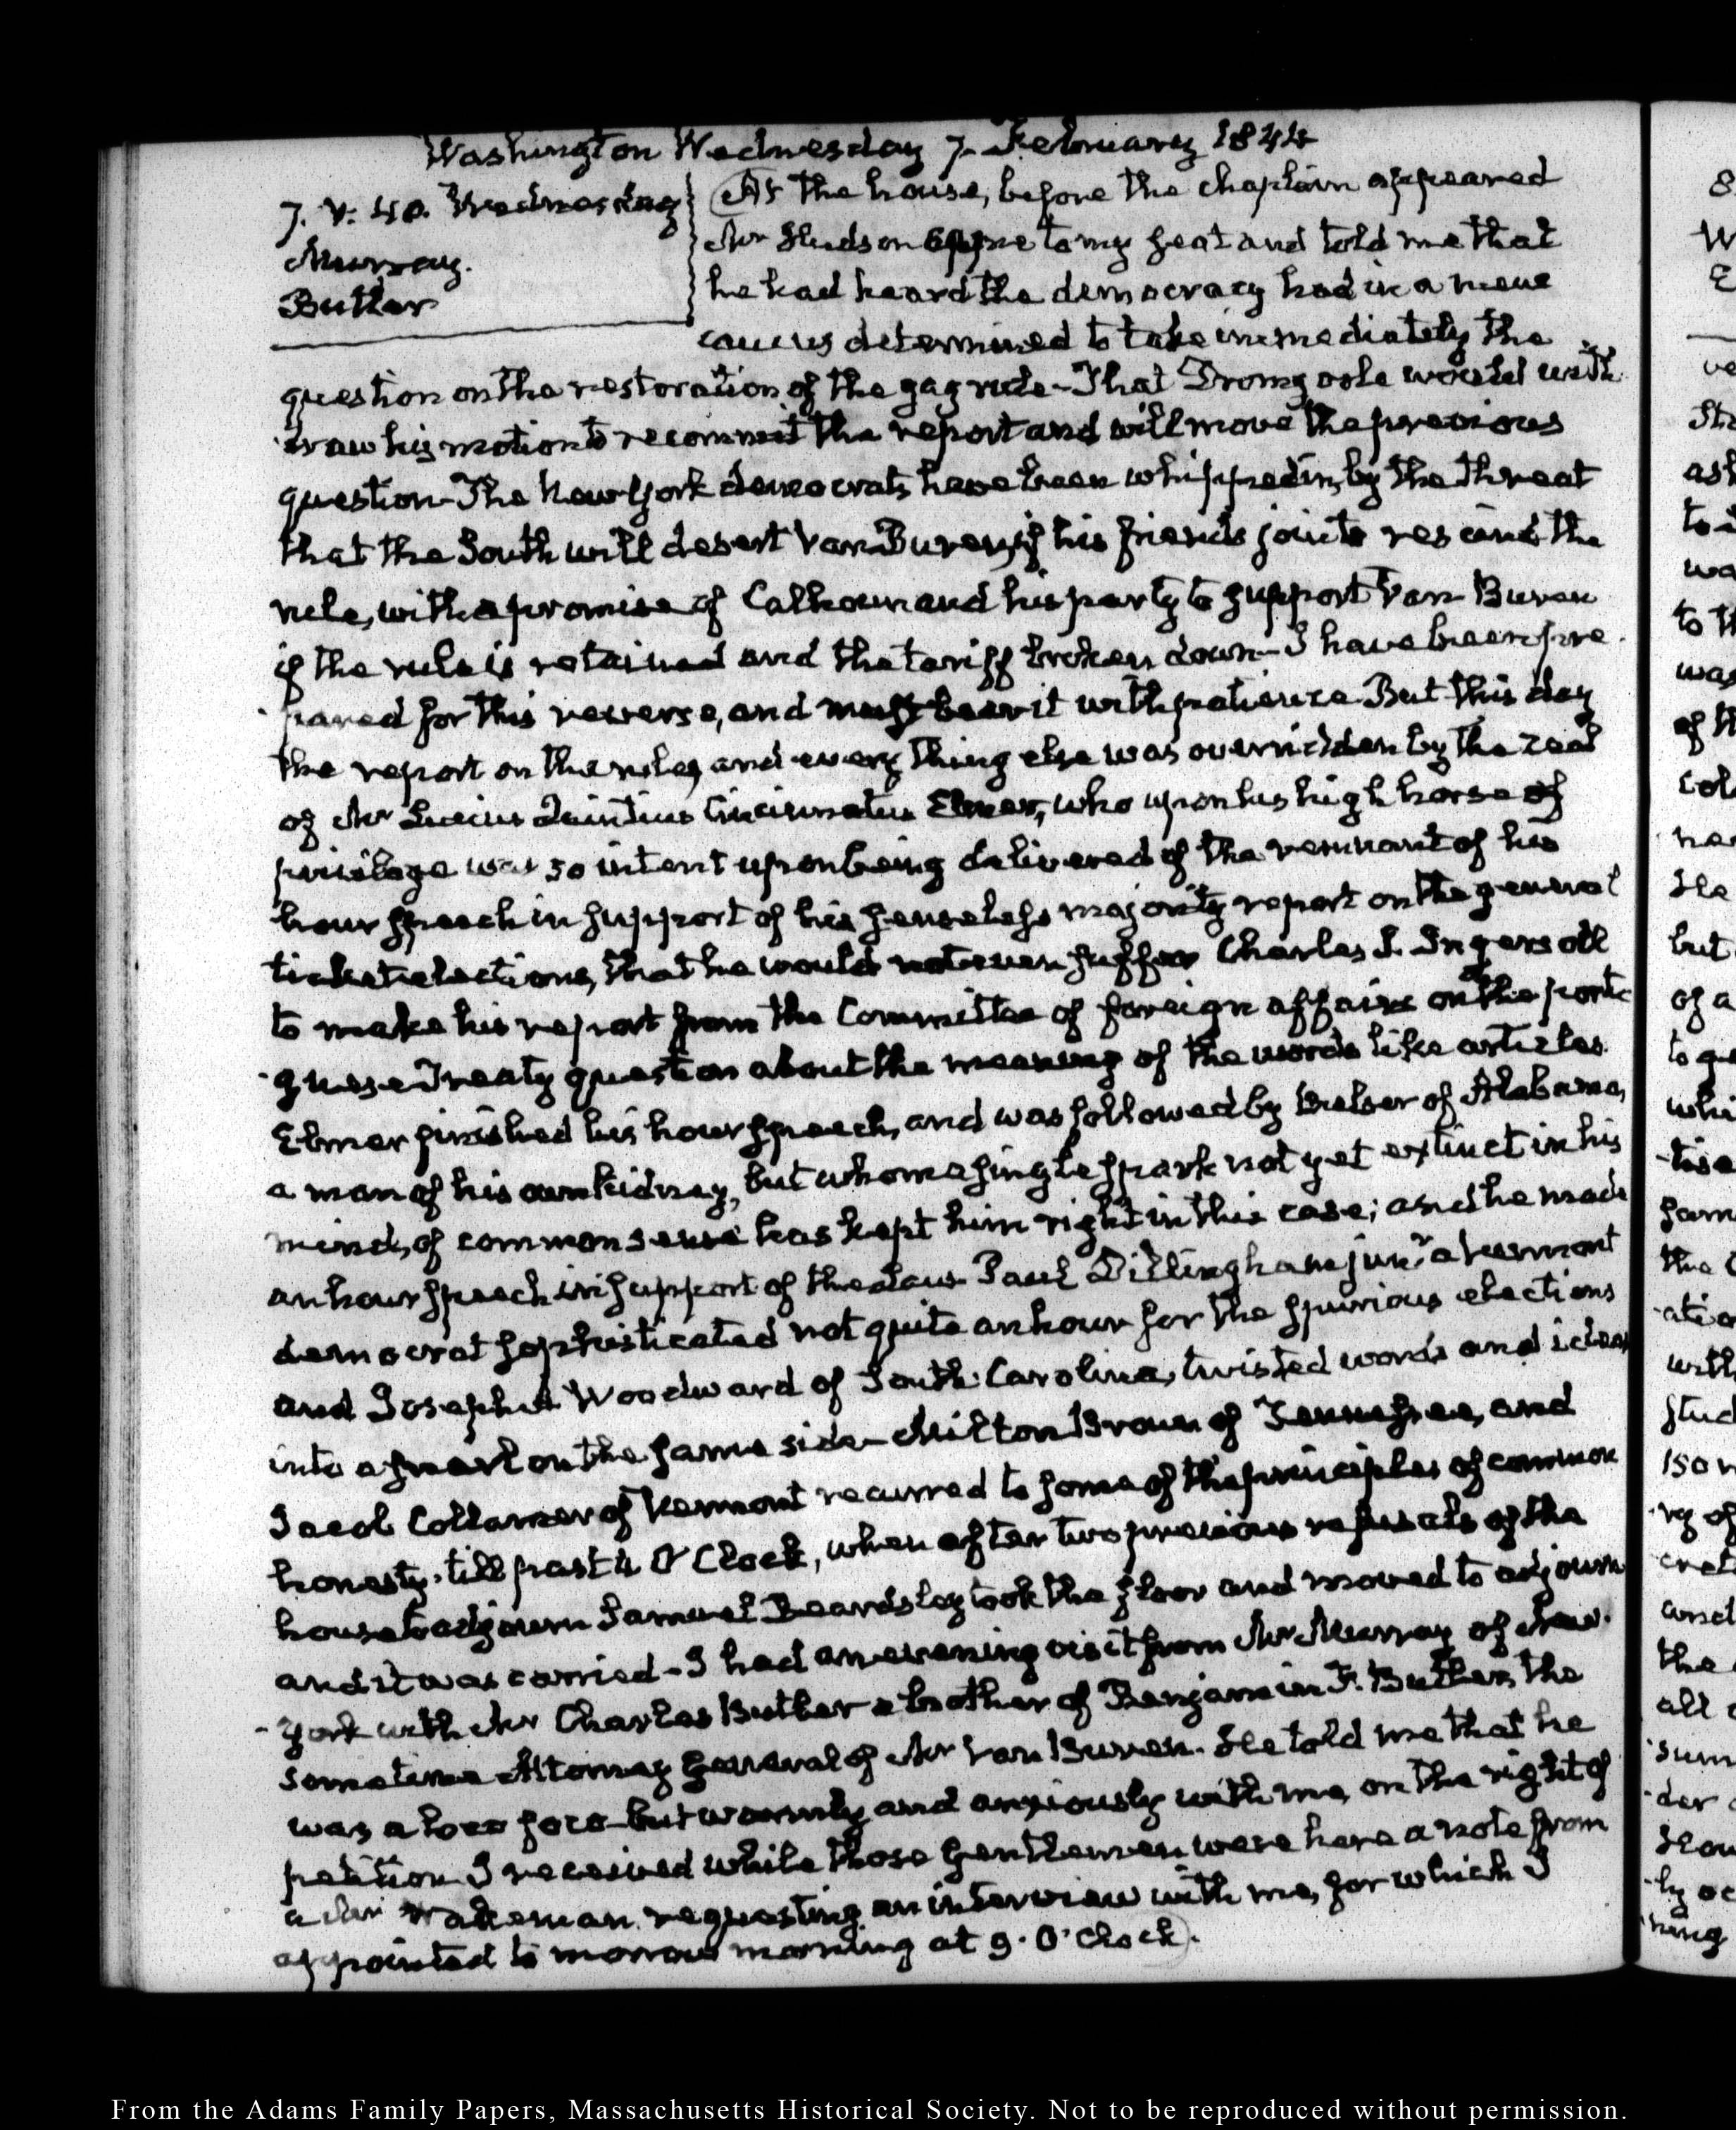 Washington Wednesday 7. February 1844
7. V: 40. Wednesday
Murray.
Butler
At the house, before the chaplain appeared
Mr Hudson came to my seat and told me that
he had heard the democracy had in a
caucus determined to take immediately the
question on the restoration of the gag rule - That Dromgoole would with
draw his motion to recommit the report and will move the previous
question - The New York democrats have been whipped in, by the threat
that the South will desert Van Buren, if his friends join to rescind the
rule, with a promise of Calhoun and his party to support Van Buren
if the rule is retained and the tariff broken down - I have been pre
pared for this reverse, and must bear it with patience. But this day
the report on the rules, and every thing else was overridden by the zeal
of Mr Lucius Quintius Cincinnatus Elmer, who upon his high horse of
privilege was so intent upon being delivered of the remnant of his
hour speech in support of his senseless majority report on the general
ticket elections, that he would not even suffer Charles J. Ingersoll
to make his report from the Committee of foreign affairs on the portu
guese Treaty question about the meaning of the words like articles.
Elmer finished his hour speech, and was followed by Belser of Alabama,
a man of his own kidney, but whom a single spark not yet extinct in his
mind, of common sense has kept him right in this case; and he made
an hour speech in support of the law. Paul Dillingham junr. a Vermont
democrat sophisticated not quite an hour for the spurious elections
and Joseph A Woodward of South Carolina, twisted words and ideas
into a snarl on the same side - Milton Brown of Tennessee, and
Jacob Collamer of Vermont recurred to some of the principles of common
honesty, till past 4 O'Clock, when after two previous refusals of the
house to adjourn Samuel Beardsley took the floor and moved to adjourn
and it was carried - I had an evening visit from Mr Murray of New-
York with Mr Charles Butler a brother of Benjamin F. Butler, the
sometime Attorney General of Mr Van Buren. He told me that he
was a loco foco but warmly and anxiously with me, on the right of
petition I received while those Gentlemen were here a note from
a Mr Wakeman requesting an interview with me, for which I
appointed to morrow morning at 9. O'Clock.
From the Adams Family Papers, Massachusetts Historical Society. Not to be reproduced without permission.